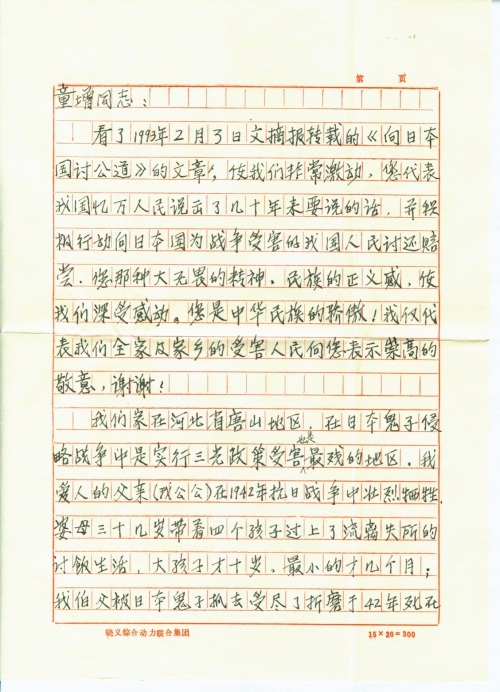 第 页
童增同志：
看了1993年2月3日文摘报转载的《向日本
国讨公道》的文章，使我们非常激动，您代表
我国忆万人民说出了几十年来要说的话，并积
极行动向日本国为战争受害的我国人民讨还赔
尝，您那种大无畏的精神，民族的正义感，使
我们深受感动。您是中华民族的骄傲！我仅代
表我们全家及家乡的受害人民向您表示崇高的
敬意，谢谢！
我们家在河北省唐山地区，在日本鬼子侵
略战争中是实行三光政策受害也是最残的地区，我
爱人的父亲（我公公）在1942年抗日战争中壮烈牺牲，
婆母三十几岁带着四个孩子过上了流离失所的
讨饭生活，大孩子才十岁，最小的才几个月；
我伯父被日本鬼子抓去受尽了折磨于42年死在
晓义综合动力联合集团
15×20=300